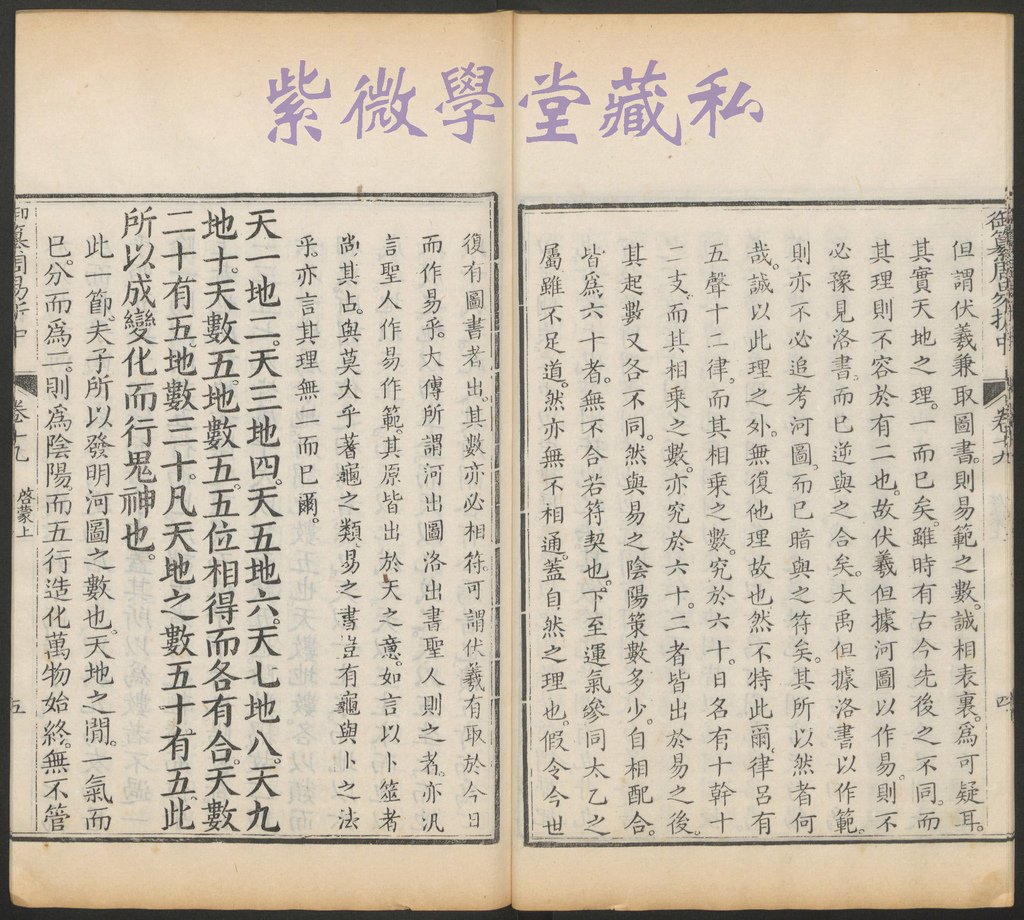 紫微學堂藏私
御纂周易折中 卷十九
但謂伏羲兼取圖書。則易範之數。誠相表裏。爲可疑耳。
其實天地之理。一而已矣。雖時有古今先後之不同。而
其理則不容於有二也。故伏羲但據河圖以作易。則不
必豫見洛書。而已逆與之合矣。大禹但據洛書以作範。
則亦不必追考河圖。而已暗與之符矣。其所以然者何
哉。誠以此理之外。無復他理故也。然不特此爾。律呂有
五聲十二律。而其相乘之數。究於六十。日名有十幹十
二支。而其相乘之數。亦究於六十。二者皆出於易之後。
其起數又各不同。然與易之陰陽策數多少。自相配合。
皆爲六十者。無不合若符契也。下至運氣參同太乙之
屬雖不足道。然亦無不相通。蓋自然之理也。假令今世
復有圖書者出。其數亦必相符。可謂伏羲有取於今日
而作易乎。大傳所謂河出圖洛出書聖人則之者。亦汎
言聖人作易作範。其原皆出於天之意。如言以卜筮者
尚其占。與莫大乎蓍龜之類。易之書。豈有龜與卜之法
乎。亦言其理無二而已爾。
天一地二。天三地四。天五地六。天七地八。天九
地十。天數五。地數五。五位相得而各有合。天數
二十有五。地數三十。凡天地之數五十有五。此
所以成變化而行鬼神也。
此一節。夫子所以發明河圖之數也。天地之閒。一氣而
已。分而爲二。則爲陰陽。而五行造化萬物始終。無不管
御纂周易折中 卷十九 啓蒙上 五